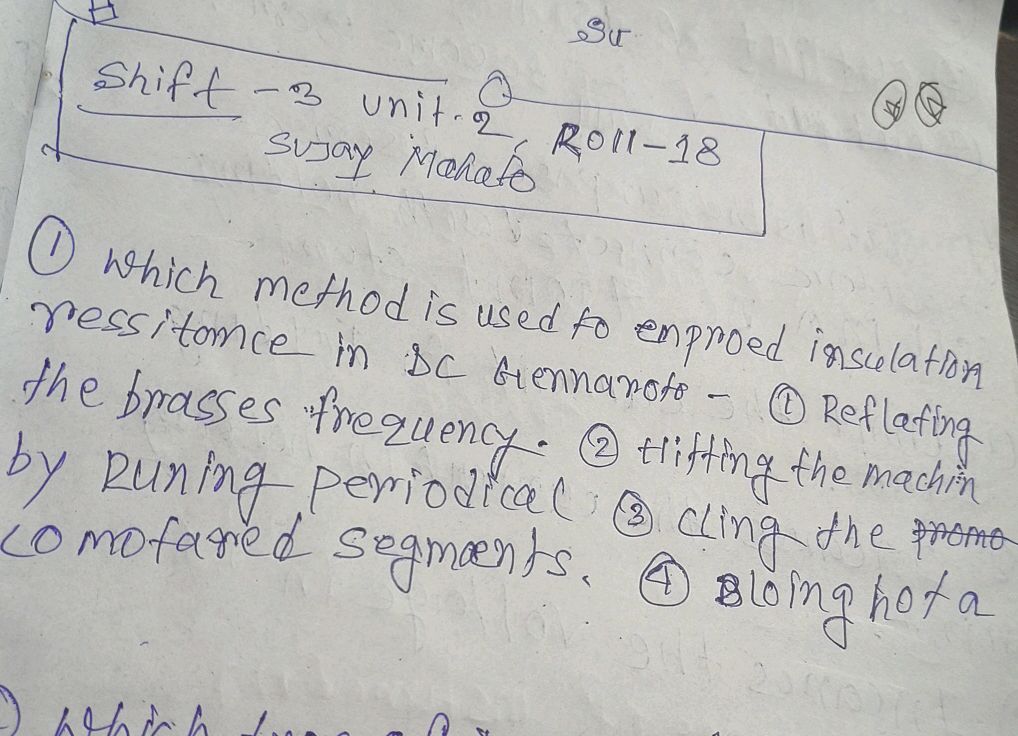 Su
Shift - 3 unit-2, Roll-18
Sujay Mahato
① Which method is used to enproed insulation
ressitomce in DC Gennaroto - ① Reflating
the brasses frequency. ② Hifting the machin
by Runing Periodical ③ cling the promo
comotared segmaents. ④ Bloing hot a
Which